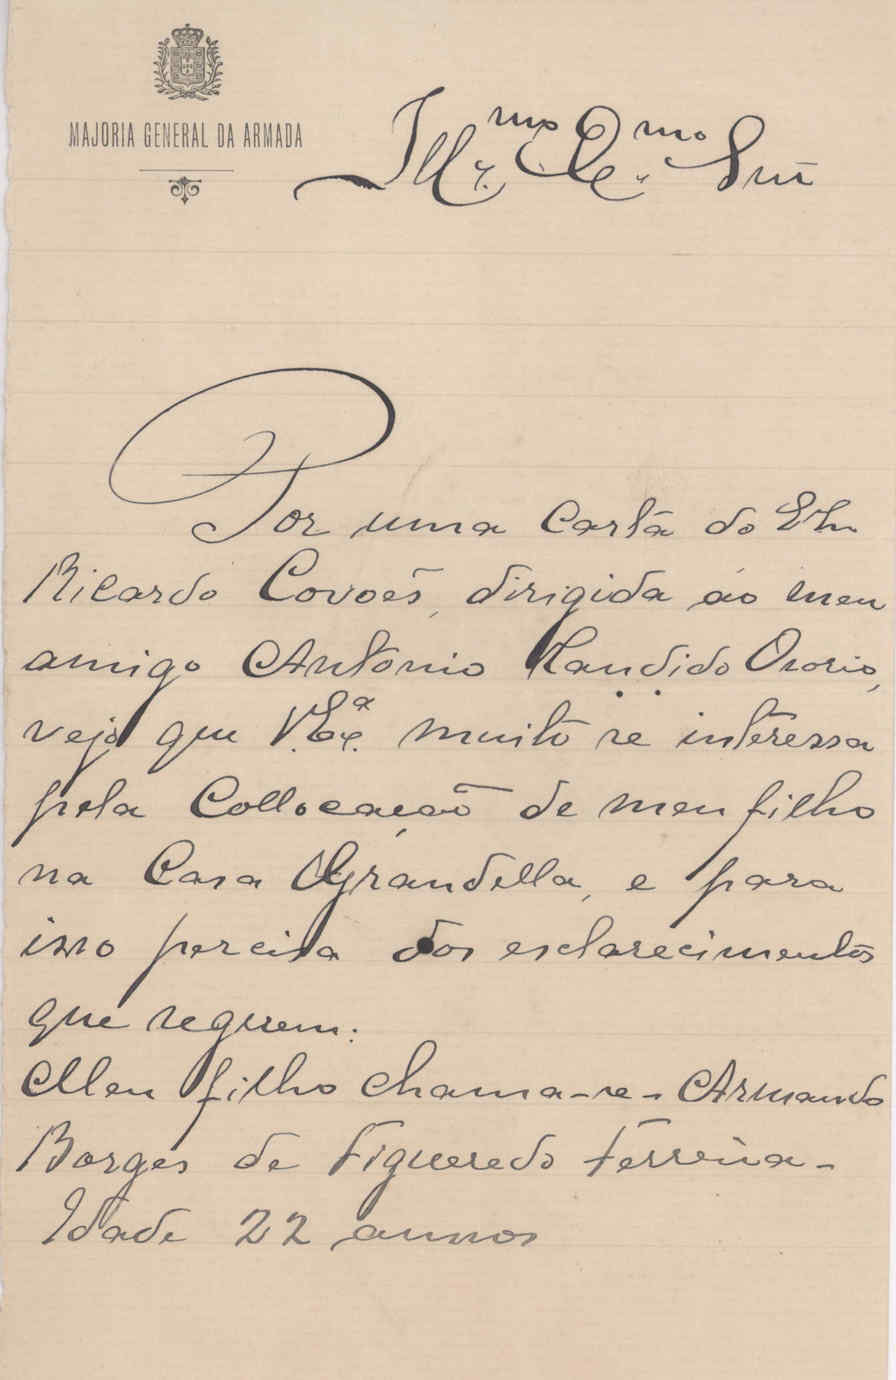 MAJORIA GENERAL DA ARMADA
Ill.mo Ex.mo Snr
Por uma carta do Snr
Ricardo Covoẽs, dirigida ao meu
amigo Antonio Candido Osorio,
vejo que V. Ex.ª muito se interessa
pela Collocação de meu filho
na Casa Grandella, e para
isso percisa dos esclarecimentos
que seguem:
Meu filho chama-se- Armando
Borges de Figueredo Ferreira-
Idade 22 annos